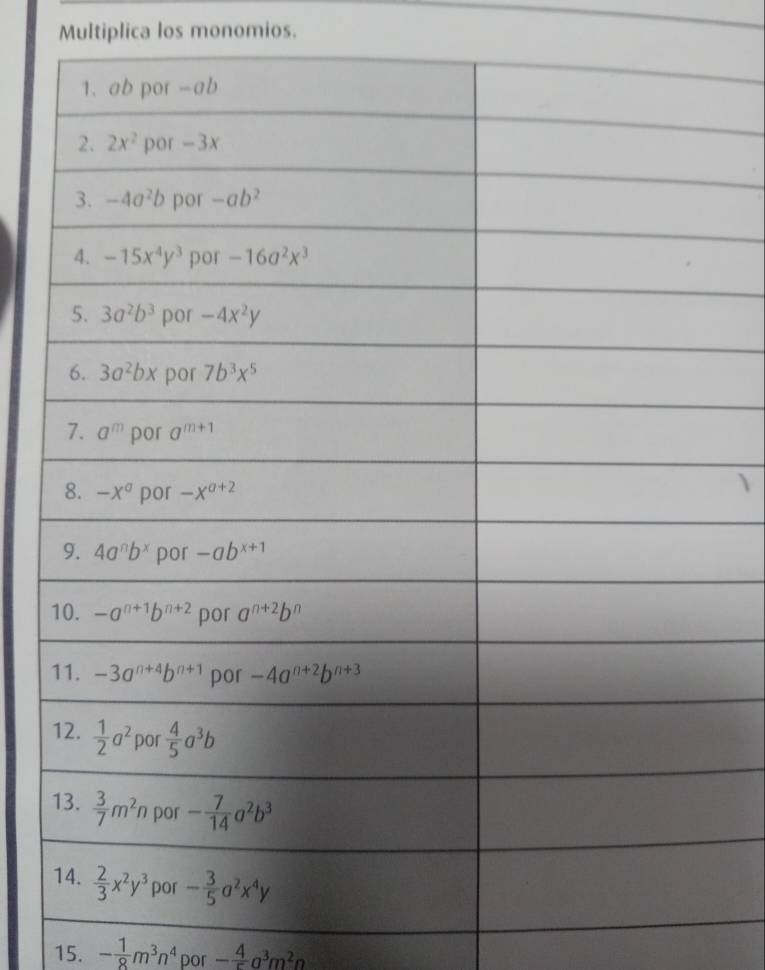 Multiplica los monomios.
1. ab por −ab
2. 2x² por −3x
3. −4a²b por −ab²
4. −15x⁴y³ por −16a²x³
5. 3a²b³ por −4x²y
6. 3a²bx por 7b³x⁵
7. aᵐ por aᵐ⁺¹
8. −xᵃ por −xᵃ⁺²
9. 4aⁿbˣ por −abˣ⁺¹
10. −aⁿ⁺¹bⁿ⁺² por aⁿ⁺²bⁿ
11. −3aⁿ⁺⁴bⁿ⁺¹ por −4aⁿ⁺²bⁿ⁺³
12. 1/2 a² por 4/5 a³b
13. 3/7 m²n por −7/14 a²b³
14. 2/3 x²y³ por −3/5 a²x⁴y
15. −1/8 m³n⁴ por −4/5 a³m²n